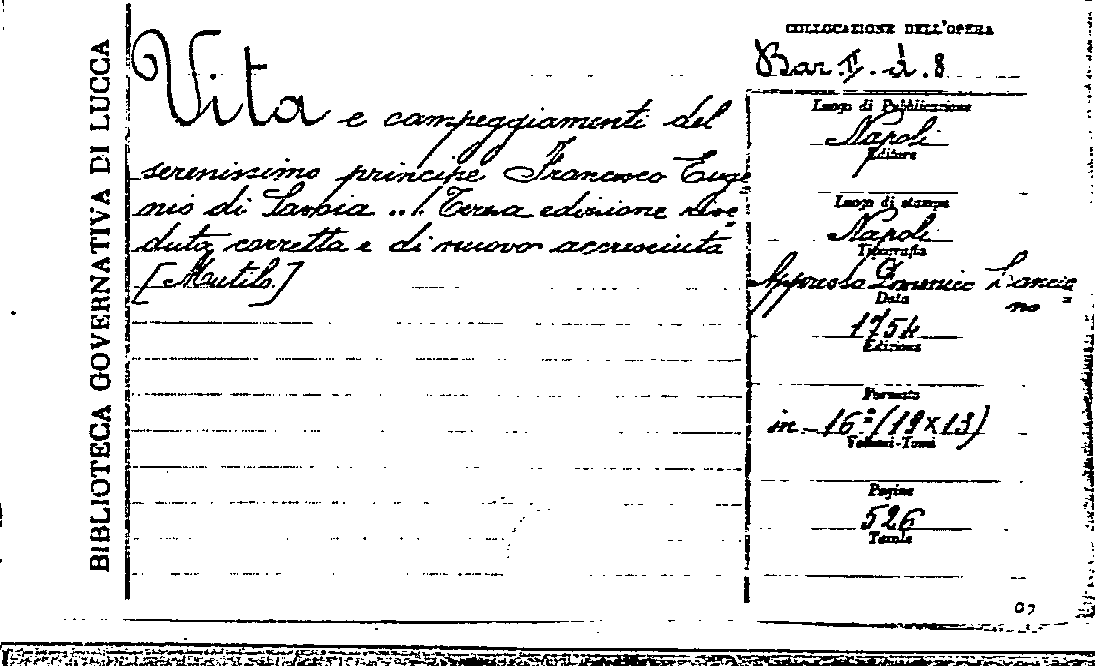 BIBLIOTECA GOVERNATIVA DI LUCCA
Vita e campeggiamenti del
serenissimo principe Francesco Euge
nio di Savoia ... Terza edizione rive=
duta, corretta e di nuovo accresciuta
[Mutilo.]
COLLOCAZIONE DELL'OPERA
Bar. II. d. 8
Luogo di Pubblicazione
Napoli
Editore
Luogo di stampa
Napoli
Tipografia
Appresso Domenico Lancia=
no
Data
1754
Edizione
Formato
in-16º (19x13)
Volumi-Tomi
Pagine
526
Tavole